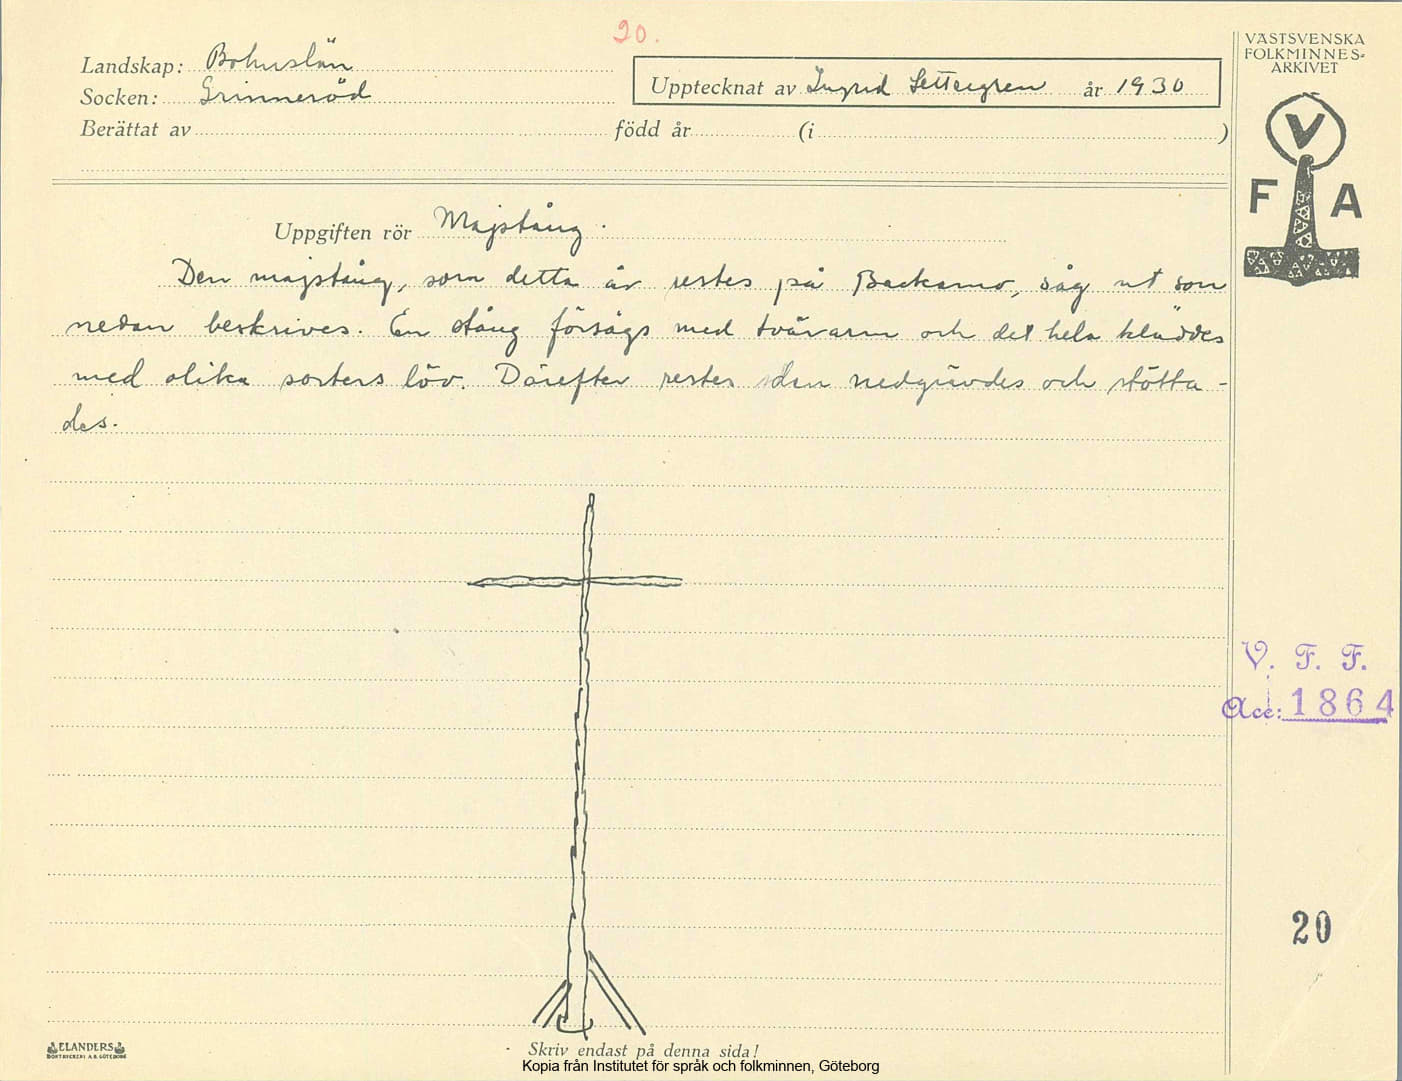 20.
VÄSTSVENSKA
FOLKMINNES-
ARKIVET
Landskap: Bohuslän
Socken: Grinneröd
Upptecknat av Ingrid Settergren år 1930
Berättat av född år (i )
V
F A
Uppgiften rör Majstång.
Den majstång, som detta år restes på Backamo, såg ut som
nedan beskrives. En stång försågs med tvärarm och det hela kläddes
med olika sorters löv. Därefter restes den nedgrävdes och stötta-
des.
V. F. F.
Acc: 1864
20
ELANDERS
BOKTRYCKERI A.B. GÖTEBORG
Skriv endast på denna sida!
Kopia från Institutet för språk och folkminnen, Göteborg